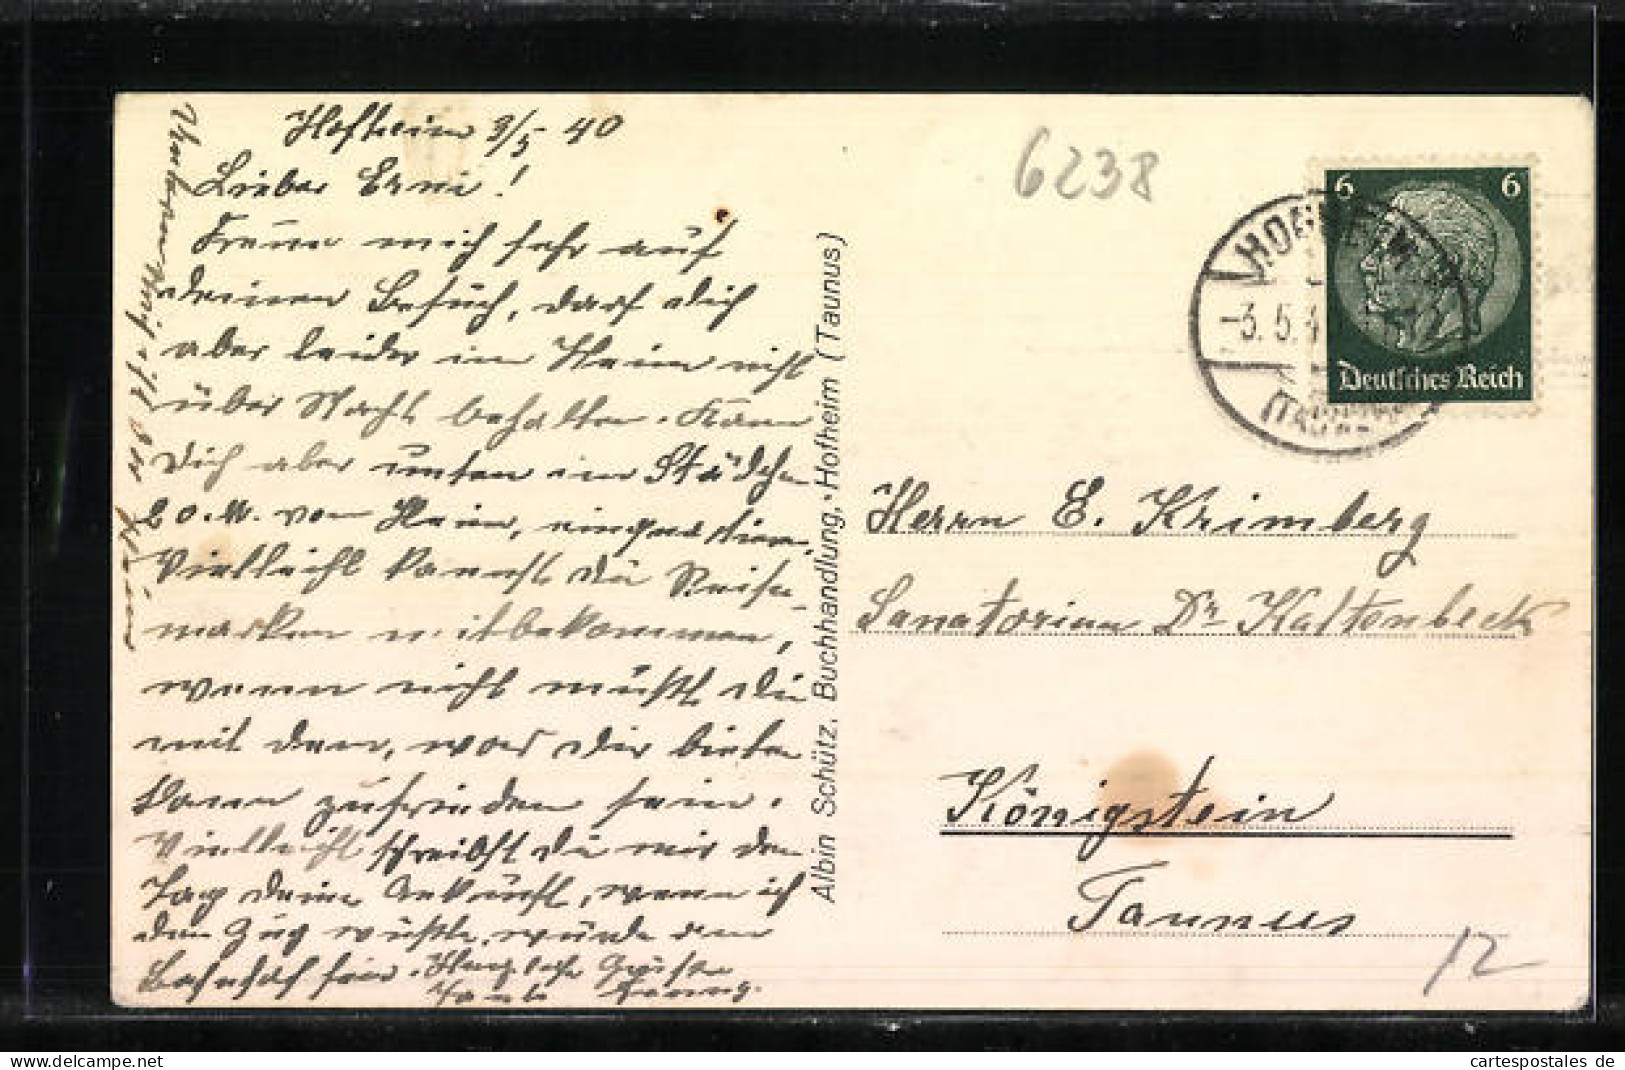 Hofheim 3/5 40
Lieber Erni!
Freue mich sehr auf
deinen Besuch, darf dich
aber leider im Heim nicht
über Nacht behalten. Kann
dich aber unten im Städchen
20. M. vom Heim, einquartieren.
Vielleicht kannst du Reise-
marken mitbekommen,
wenn nicht müßt du
mit dem, was dir bieten
kann zufrieden sein.
Vielleicht schreibst du mir den
Tag deine Ankunft, wenn ich
den Zug wüßte, würde am
Bahnhof sein. Herzliche Grüße
Tante
Albin Schütz, Buchhandlung, Hofheim (Taunus)
6238
6 6
Deutsches Reich
HOFHEIM
-3.5.4
(TAUNUS)
Herrn E. Krimberg
Sanatorium Dr Kaltenbeck
Königstein
Taunus
12
cartespostales de